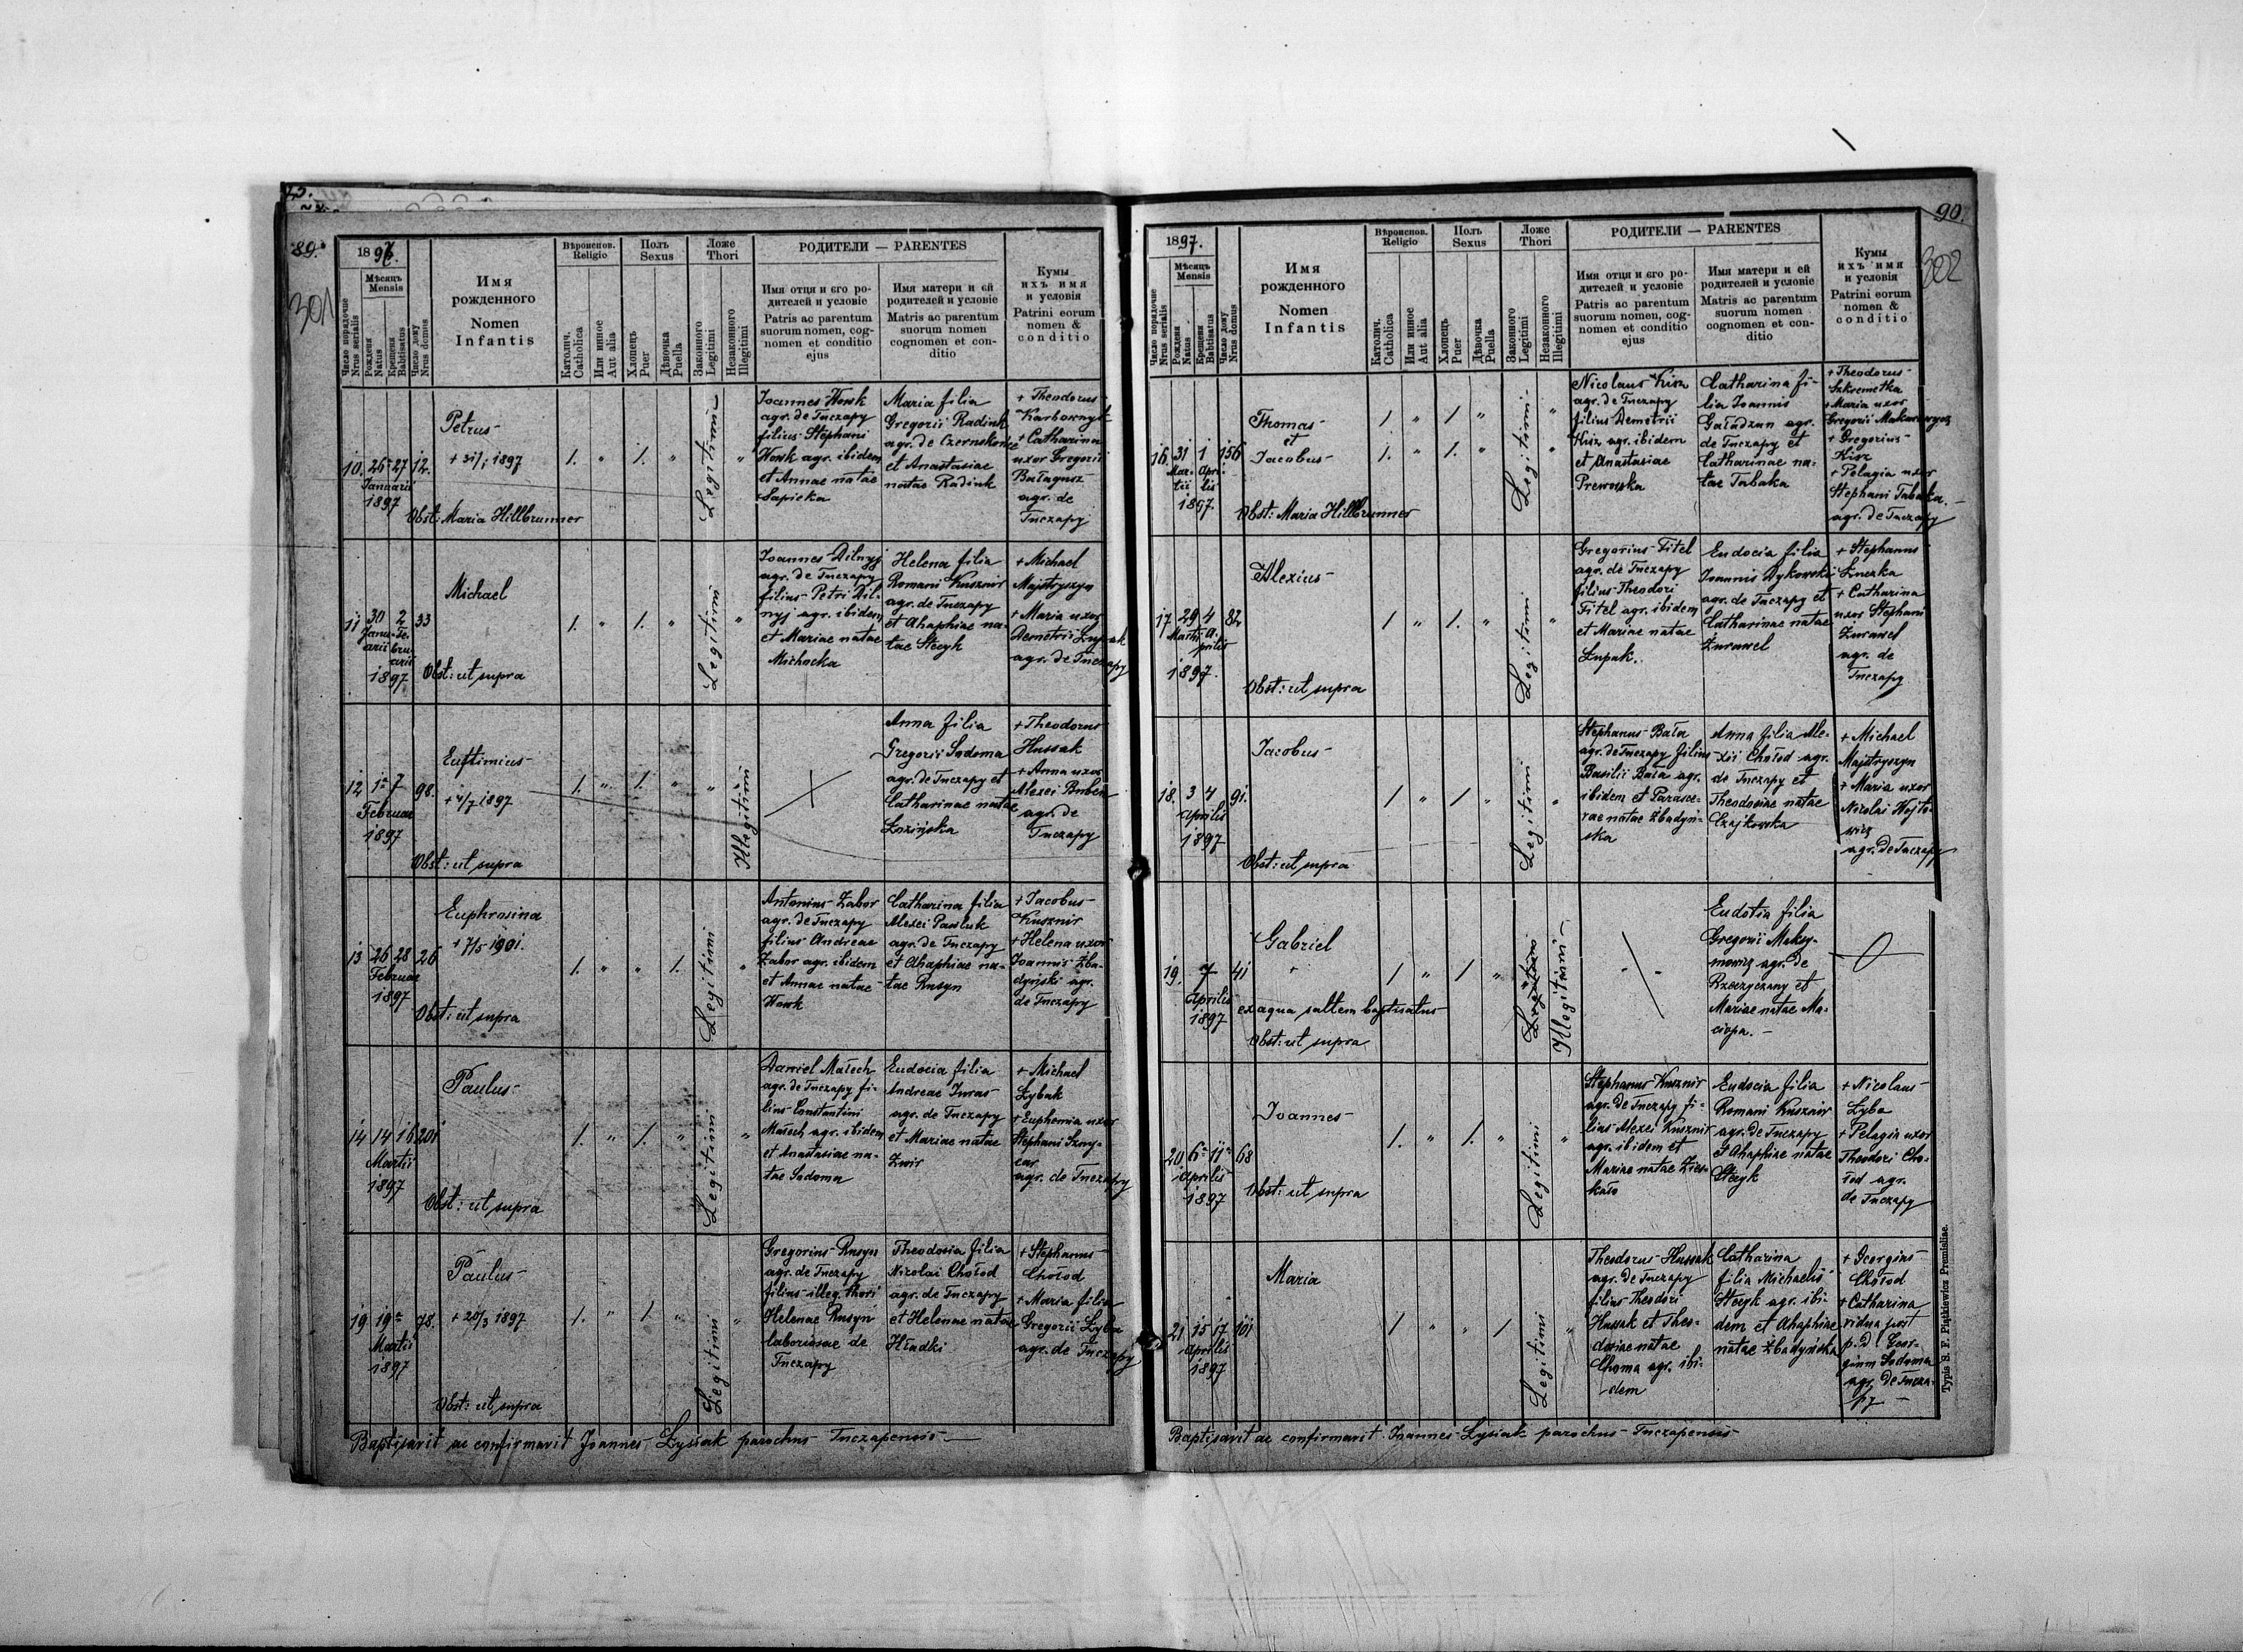 89.
301
1897.
Мѣсяцъ
Mensis
Число порядочне
Nrus serialis
Рожденя
Natus
Крещеня
Babtisatus
Число дому
Nrus domus
Имя
рожденного
Nomen
Infantis
Вѣроиспов.
Religio
Католич.
Catholica
Или инное
Aut alia
Полъ
Sexus
Хлопець
Puer
Дѣвочка
Puella
Ложе
Thori
Законного
Legitimi
Незаконного
Illegitimi
РОДИТЕЛИ — PARENTES
Имя отця и єго ро-
дителей и условіє
Patris ac parentum
suorum nomen, cog-
nomen et conditio
ejus
Имя матери и єй
родителей и условіє
Matris ac parentum
suorum nomen
cognomen et con-
ditio
Кумы
ихъ имя
и условія
Patrini eorum
nomen &
conditio
10. 26 27 12.
Januarii
1897
Petrus
+ 31/1 1897
Obst: Maria Hillbrunner
1. " 1. "
Legitimi "
Joannes Wowk
agr. de Tuczapy
filius Stephani
Wowk agr. ibidem
et Annae natae
Sapicka
Maria filia
Gregorii Radiuk
agr. de Czernokonce
et Anastasiae
natae Radiuk
+ Theodorus
Karbownyk
+ Catharina
uxor Gregorii
Bałagusz
agr. de
Tuczapy
11 30 2 33
Janu- Fe-
arii bru-
arii
1897
Michael
Obst: ut supra
1. " 1. "
Legitimi "
Joannes Dilnyj
agr. de Tuczapy
filius Petri Dil-
nyj agr. ibidem
et Mariae natae
Michocka
Helena filia
Romani Kusznir
agr. de Tuczapy
et Ahaphiae na-
tae Stecyk
+ Michael
Majstryszyn
+ Maria uxor
Demetrii Łupak
agr. de Tuczapy
12 1 7 98.
Februar
1897
Euftimius
+ 4/7 1897
Obst: ut supra
1. " 1. "
" Illegitimi
Anna filia
Gregorii Sodoma
agr. de Tuczapy et
Catharinae natae
Łozińska
+ Theodorus
Hussak
+ Anna uxor
Alexei Buben
agr. de
Tuczapy
13 26 28 26
Februar
1897
Euphrosina
+ 7/5 1901.
Obst: ut supra
1. " " 1.
Legitimi "
Antonius Zabor
agr. de Tuczapy
filius Andreae
Zabor agr. ibidem
et Annae natae
Wowk
Catharina filia
Alexei Pawluk
agr. de Tuczapy
et Ahaphiae na-
tae Rusyn
+ Jacobus
Kusznir
+ Helena uxor
Joannis Żba-
dyński agr.
de Tuczapy
14 14 16 201
Martii
1897
Paulus
Obst: ut supra
1. " 1. "
Legitimi "
Daniel Małech
agr. de Tuczapy fi-
lius Constantini
Małech agr. ibidem
et Anastasiae na-
tae Sodoma
Eudocia filia
Andreae Juras
agr. de Tuczapy
et Mariae natae
Żwir
+ Michael
Łybak
+ Euphemia uxor
Stephani
agr. de Tuczapy
19 19 78.
Martii
1897
Paulus
+ 20/3 1897
Obst: ut supra
1. " 1 "
Legitimi "
Gregorius Rusyn
agr. de Tuczapy
filius illeg. thori
Helenae Rusyn
laboriosae de
Tuczapy
Theodosia filia
Nicolai Chołod
agr. de Tuczapy
et Helenae natae
Hładki
+ Stephanus
Chołod
+ Maria filia
Gregorii Łyba
agr. de Tuczapy
Baptisavit ac confirmavit Joannes Łysiak parochus Tuczapensis
90.
302
1897.
Мѣсяцъ
Mensis
Число порядочне
Nrus serialis
Рожденя
Natus
Крещеня
Babtisatus
Число дому
Nrus domus
Имя
рожденного
Nomen
Infantis
Вѣроиспов.
Religio
Католич.
Catholica
Или инное
Aut alia
Полъ
Sexus
Хлопець
Puer
Дѣвочка
Puella
Ложе
Thori
Законного
Legitimi
Незаконного
Illegitimi
РОДИТЕЛИ — PARENTES
Имя отця и єго ро-
дителей и условіє
Patris ac parentum
suorum nomen, cog-
nomen et conditio
ejus
Имя матери и єй
родителей и условіє
Matris ac parentum
suorum nomen
cognomen et con-
ditio
Кумы
ихъ имя
и условія
Patrini eorum
nomen &
conditio
16. 31 1 156
Mar- Apri-
tii lis
1897.
Thomas
et
Jacobus
Obst: Maria Hillbrunner
1 " 1 " "
1. " 1. " "
Legitimi
Nicolaus Kisz
agr. de Tuczapy
filius Demetrii
Kisz agr. ibidem
et Anastasiae
Prewowska
Catharina fi-
lia Joannis
Gaładzun agr.
de Tuczapy et
Catharinae na-
tae Tabaka
+ Theodorus
Szkremetka
+ Maria uxor
Gregorii Makarowycz
+ Gregorius
Kisz
+ Pelagia uxor
Stephani Tabaka.
agr. de Tuczapy
17 29 4 82
Martii A-
prilis
1897.
Alexius
Obst: ut supra
1 " 1. "
Legitimi "
Gregorius Fitel
agr. de Tuczapy
filius Theodori
Fitel agr. ibidem
et Mariae natae
Łupak.
Eudocia filia
Joannis Dykowski
agr. de Tuczapy et
Catharinae natae
Żurawel
+ Stephanus
Łuczka
+ Catharina
uxor Stephani
Żurawel
agr. de
Tuczapy
18. 3 4 91.
Aprilis
1897
Jacobus
Obst: ut supra
1 " 1 "
Legitimi "
Stephanus Bała
agr. de Tuczapy filius
Basilii Bała agr.
ibidem et Parasce-
vae natae Żbadyń-
ska
Anna filia Ale-
xii Chołod agr.
de Tuczapy et
Theodosiae natae
Czajkowska
+ Michael
Majstryszyn
+ Maria uxor
Nicolai Wojto-
wicz
agr. de Tuczapy
19. 7 41
Aprilis
1897
Gabriel
ex aqua saltem baptisatus
Obst: ut supra
1 " 1 "
Legitimi
Illegitimi
Eudotia filia
Gregorii Maksy-
mowicz agr. de
Rzeczyczany et
Mariae natae Ma-
ciopa.
20 6 11 68
Aprilis
1897
Joannes
Obst: ut supra
1. " 1. "
Legitimi "
Stephanus Kusznir
agr. de Tuczapy fi-
lius Alexei Kusznir
agr. ibidem et
Mariae natae
Eudocia filia
Romani Kusznir
agr. de Tuczapy
et Ahaphiae natae
Stecyk
+ Nicolaus
Łyba
+ Pelagia uxor
Theodori Cho-
łod agr.
de Tuczapy
21 15 17 101
Aprilis
1897
Maria
1 " " 1
Legitimi "
Theodorus Hussak
agr. de Tuczapy
filius Theodori
Hussak et Theo-
dosiae natae
Choma agr. ibi-
dem
Catharina
filia Michaelis
Stecyk agr. ibi-
dem et Ahaphiae
natae Żbadyńska
+ Georgius
Chołod
+ Catharina
vidua post
p. d. Geor-
gium Sodoma
agr. de Tucza-
py
Baptisavit ac confirmavit Joannes Łysiak parochus Tuczapensis
Typis S. F. Piątkiewicz Premisliae.